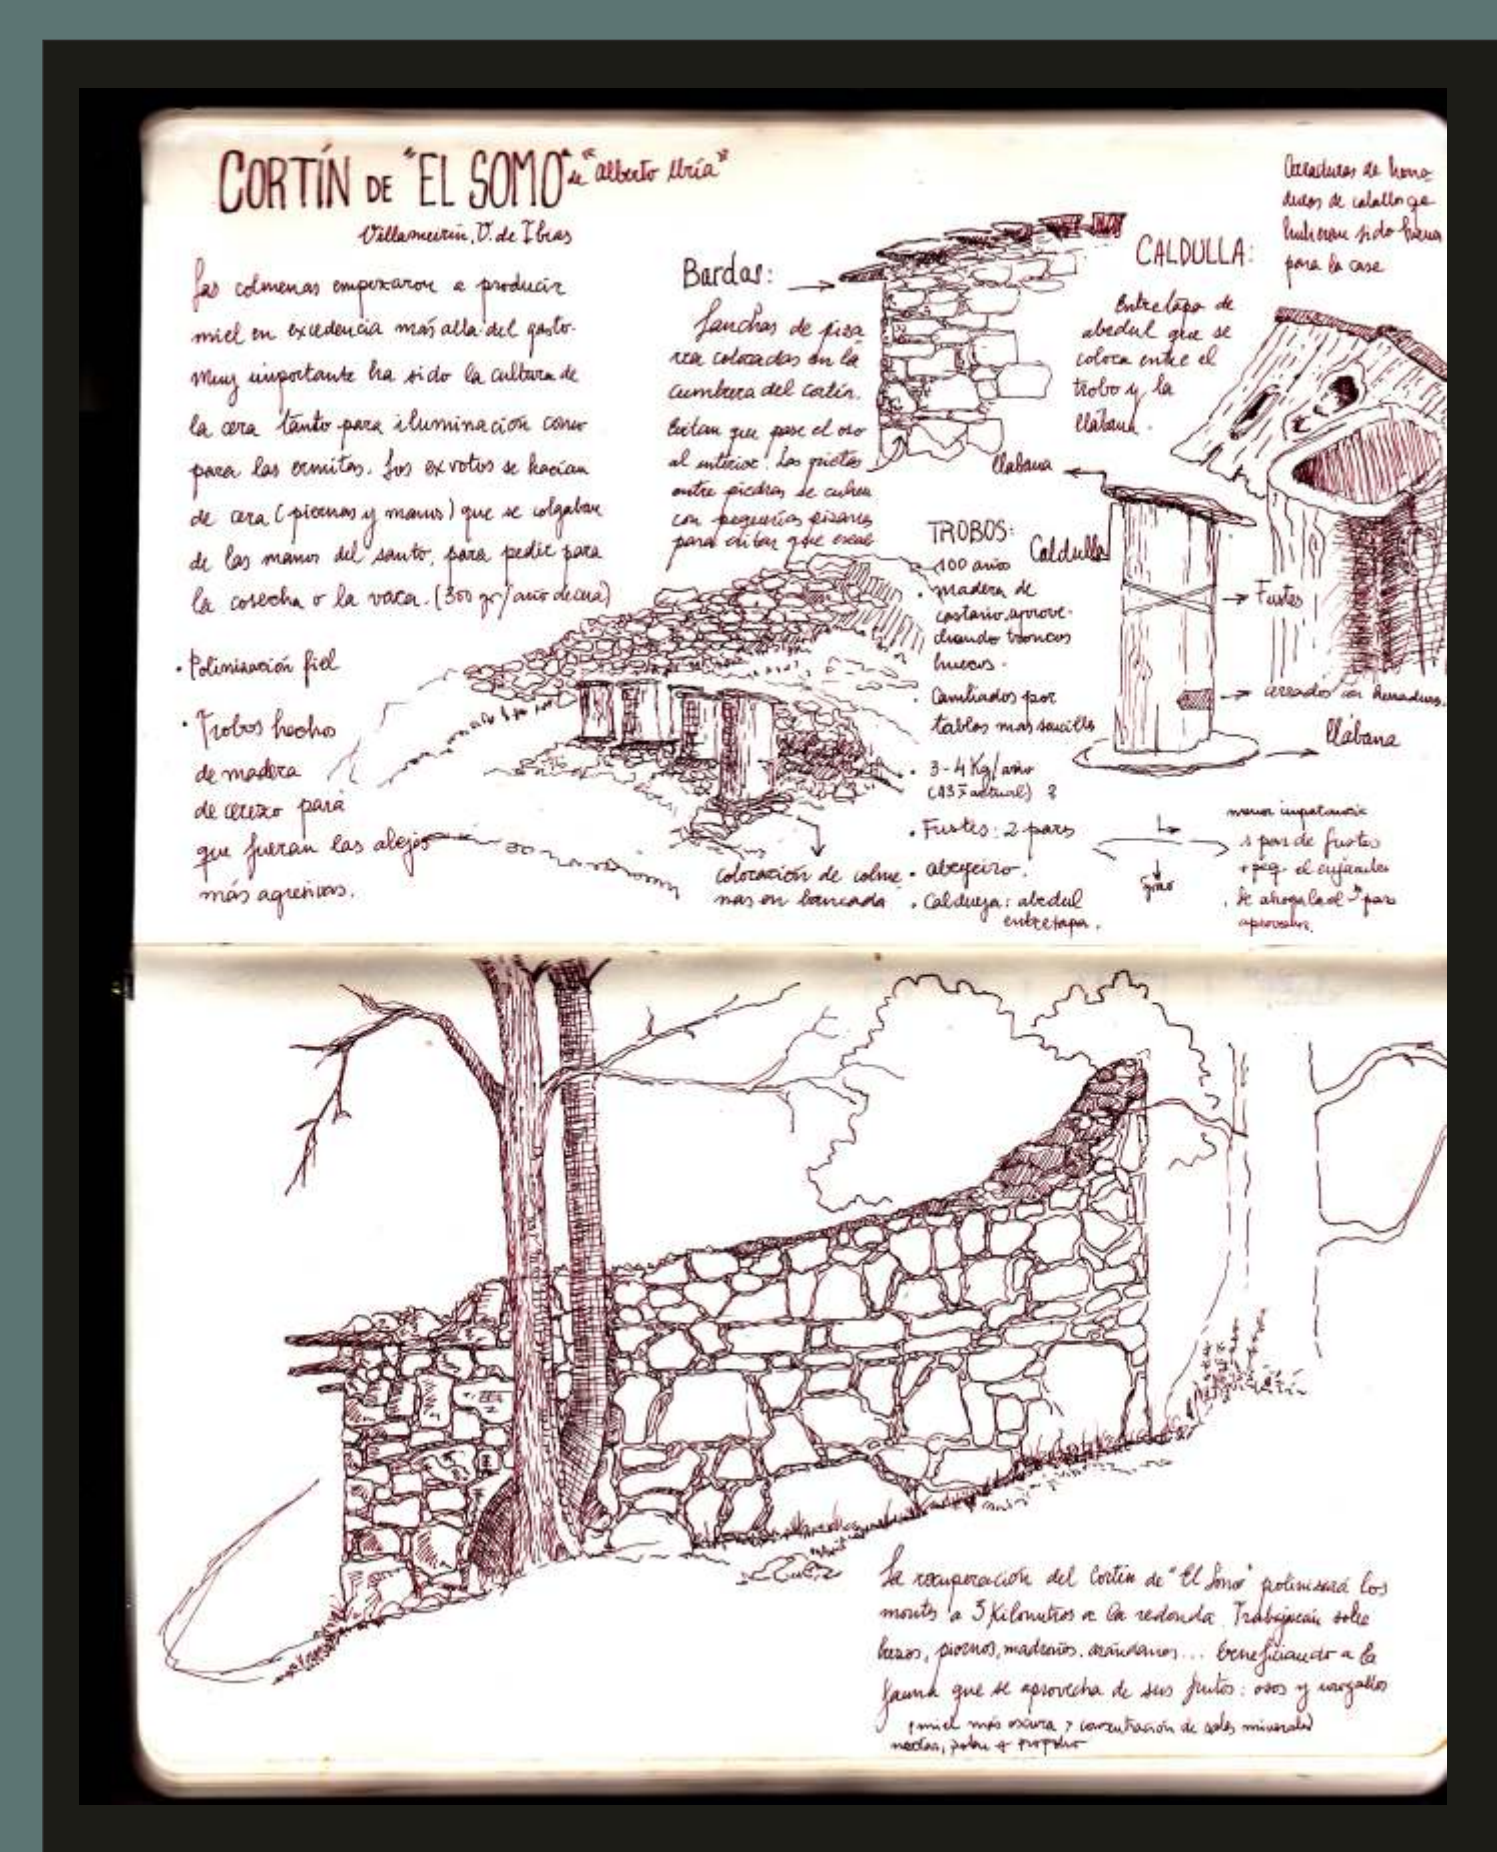 CORTÍN DE "EL SOMO" de "Alberto Uría"
Villameirín, V. de Ibias
Las colmenas empezaron a producir
miel en excedencia más alla del gasto.
Muy importante ha sido la cultura de
la cera tanto para iluminación como
para las ermitas. Los exvotos se hacían
de cera (piernas y manos) que se colgaban
de las manos del santo, para pedir para
la cosecha o la vaca. (300 gr/año de cera)
• Polinización fiel
• Trobos hechos
de madera
de cerezo para
que fueran las abejas
más agresivas.
Bardas:
Lanchas de piza
rra colocadas en la
cumbrera del cortín.
Evitan que pase el oso
al interior. Las grietas
entre piedras se cubren
con pequeñas pizarras
para evitar que
colocación de colme
nas en bancada
TROBOS:
100 años
• madera de
castaño, aprove-
chando troncos
huecos.
• Cambiados por
tablas mas sencillas
• 3-4 Kg/año
(13 actual) ?
• Fustes: 2 pares
• abeyeiro.
• Caldueya: abedul
entretapa.
CALDULLA:
Entretapa de
abedul que se
coloca entre el
trobo y la
llábana.
Cerraduras de herra-
duras de caballo qe
hubieran sido buenas
para la casa
llábana
Caldulla
Fustes
cerrados con herraduras.
Llábana
menor importancia
1 par de fustes
+ peq. el enjambre
Se ahogaba el para
aprovechar.
La recuperación del Cortín de "El Somo" polinizará los
montes a 3 Kilometros a la redonda. Trabajarán sobre
brezos, piornos, madroños, arándanos... beneficiando a la
fauna que se aprovecha de sus frutos: osos y urogallos
¡miel más oscura > concentración de sales minerales
nectar, polen + propoleo